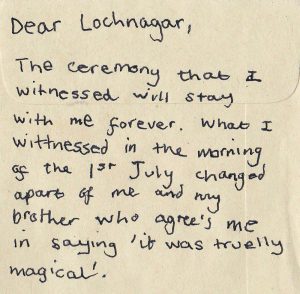 Dear Lochnagar,
The ceremony that I
witnessed will stay
with me forever. What I
wittnessed in the morning
of the 1st July changed
apart of me and my
brother who agree's me
in saying 'it was truelly
magical'.